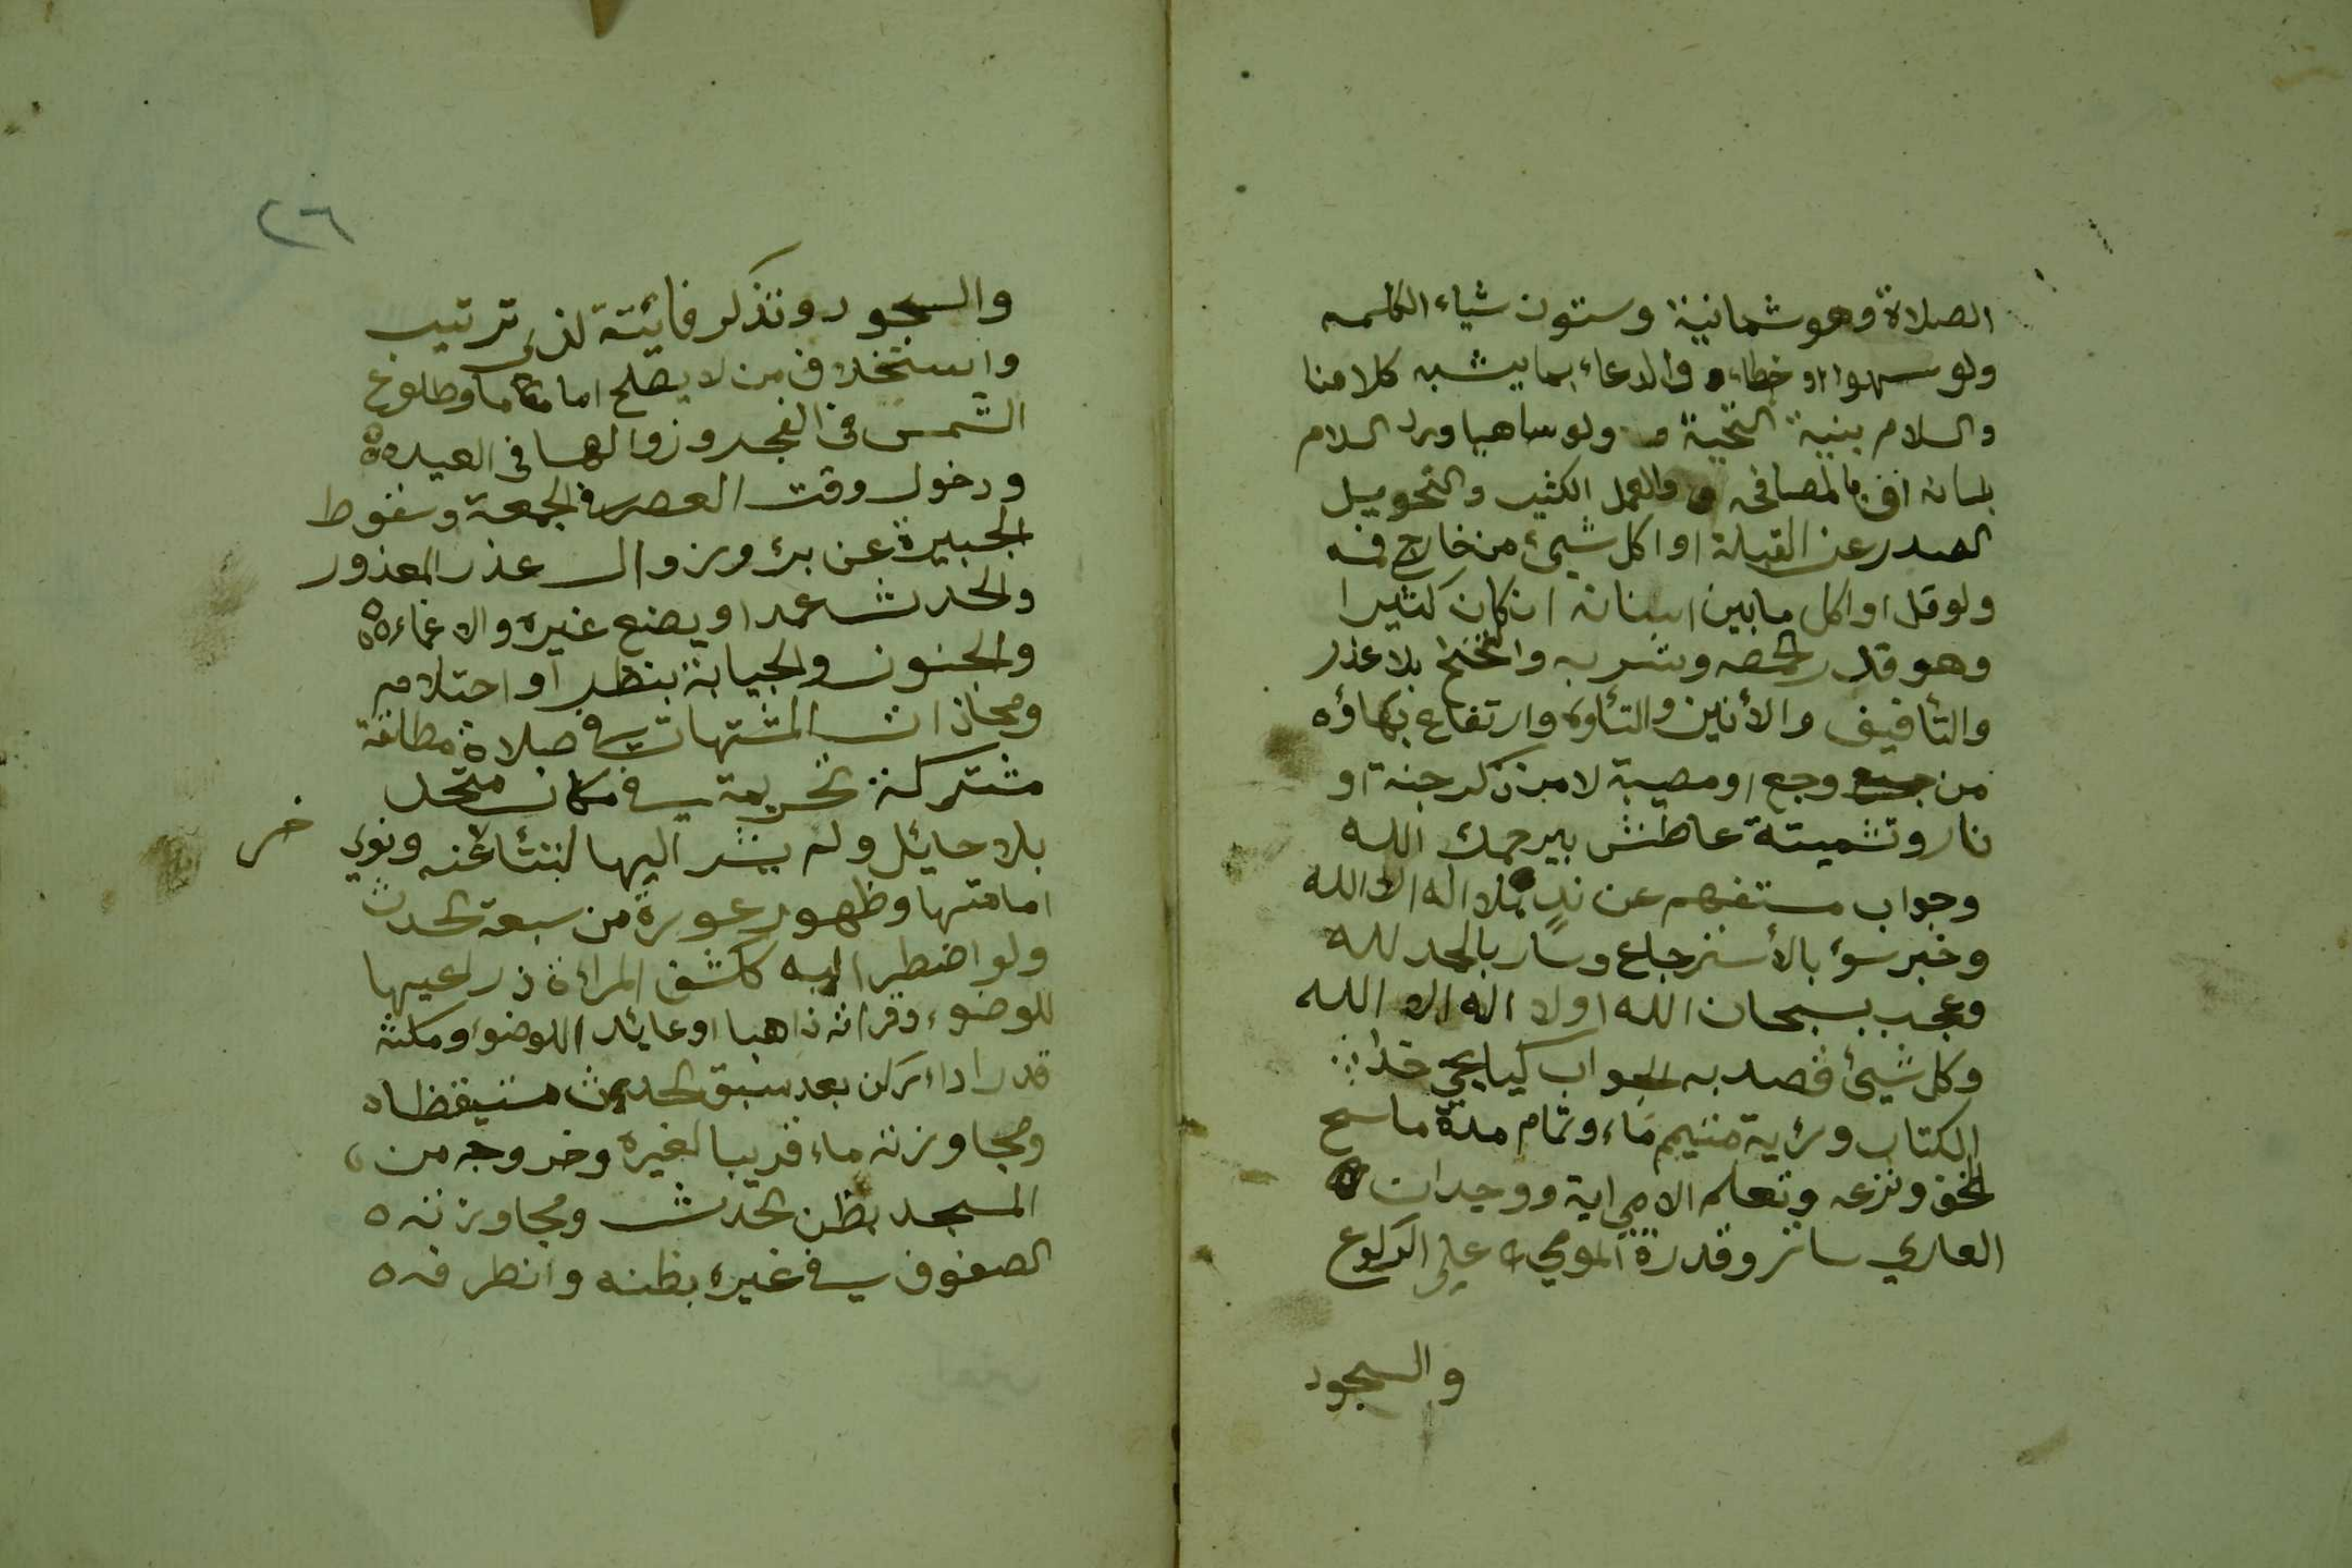 الصلاة وهو شمانية وستون شياء الكلمه
ولو سهوا او خطاء و والدعاء بما يشبه كلامنا
والسلام بنية التحية و ولو ساهيا ورد السلام
بلسانه او بالمصافحه و والعمل الكثير والتحويل
الصدر عن القبلة او اكل شيئ من خارج فمه
ولو قل او اكل ما بين اسنانه ان كان كثيرا
وهو قدر الحمصه وشربه والتنحنح بلا عذر
والتأفيف والأنين والتأوه وارتفاع بكاؤه
من وجع او مصيبة لا من ذكر جنة او
نار وتشميتة عاطش بيرحمك الله
وجواب مستفهم عن ند بلا اله الا الله
وخبر سؤ بالأسترجاع وسار بالحمد لله
وعجب بسبحان الله او لا اله الا الله
وكل شيئ قصد به الجواب كيا يحي خذ
الكتاب ورئية متيمم ماء وتمام مدة ماسح
الخف ونزعه وتعلم الامي اية ووجدان
العاري ساتر وقدرة المومي على الركوع
والسجود
٢٦
والسجود وتذكر فائتة لذي ترتيب
واستخلاف من لا يصلح اماما وطلوع
الشمس في الفجر وزوالها في العيد
ودخول وقت العصر في الجمعة وسقوط
الجبيرة عن برؤ وزوال عذر المعذور
والحدث عمدا او يصنع غيره والاغماء
والجنون والجبابة بنظر او احتلام
ومحاذات المشتهات في صلاة مطلقة
مشتركة تحريمة في مكان متحد
بلا حائل ولم يشر اليها لتتأ عنه ونوي
امامتها وظهور عورة من سبعة الحدث
ولو اضطر اليه ككشف المراءة ذراعيها
للوضوء وقرائه ذاهبا او عائدا اللوضوا ومكثه
قدر اداء ركن بعد سبق الحدث مستيقظا
ومجاوزته ماء قريبا لغيره وخروجه من
المسجد بظن الحدث ومجاوزته
الصفوف في غيره بظنه وانطرفه